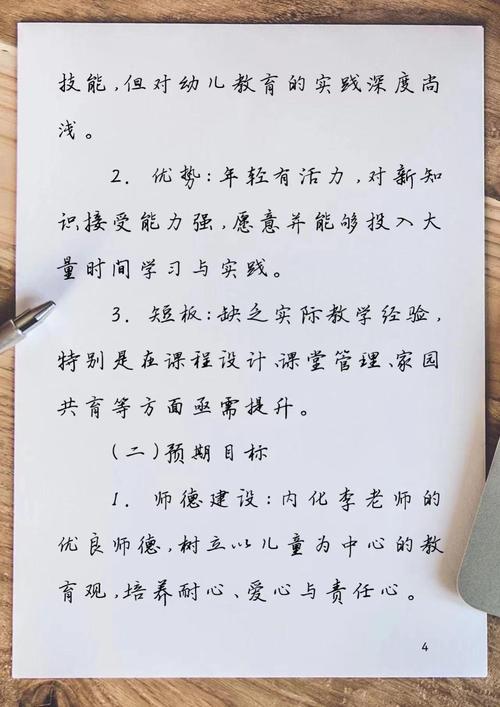 技能,但对幼儿教育的实践深度尚
浅。
2. 优势:年轻有活力,对新知
识接受能力强,愿意并能够投入大
量时间学习与实践。
3. 短板:缺乏实际教学经验,
特别是在课程设计、课堂管理、家园
共育等方面亟需提升。
(二)预期目标
1. 师德建设:内化李老师的
优良师德,树立以儿童为中心的教
育观,培养耐心、爱心与责任心。
4